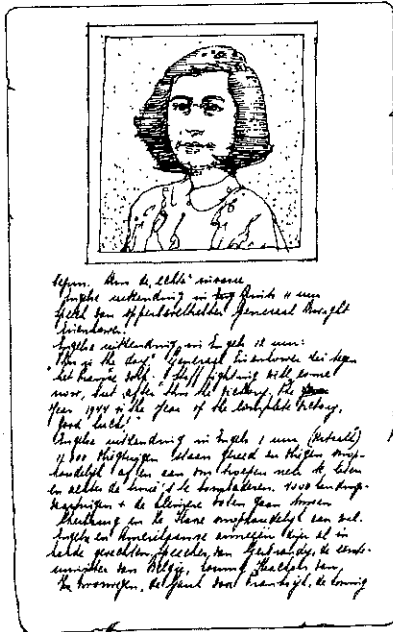 Dus de „echte" invasie
Engelse uitzending in Duits 11 uur
van opperbevelhebber Generaal Dwight
Eisenhower.
Engelse uitzending in Engels 12 uur:
„This is the day" Generaal Eisenhower zei tegen
het Franse volk: „Stiff fightning will come
now, but after this the victory. The
Year 1944 is the year of the complete victory,
good luck!"
Engelse uitzending in Engels 1 uur (Vertaald)
11.000 vliegtuigen staan gereed en vliegen onop-
houdelijk af en aan om troepen neer te laten
en achter de linie's te bombarderen. 4000 landings-
vaartuigen + de kleinere boten gaan tussen
Cherbourg en le Havre onophoudelijk aan wal.
Engelse en Amerikaanse zijn al in
harde gevechten. Speeches van Gerbrandy, de eerste-
minister van België, koning Haakon van
Noorwegen, de Gaul voor Frankrijk, de koning